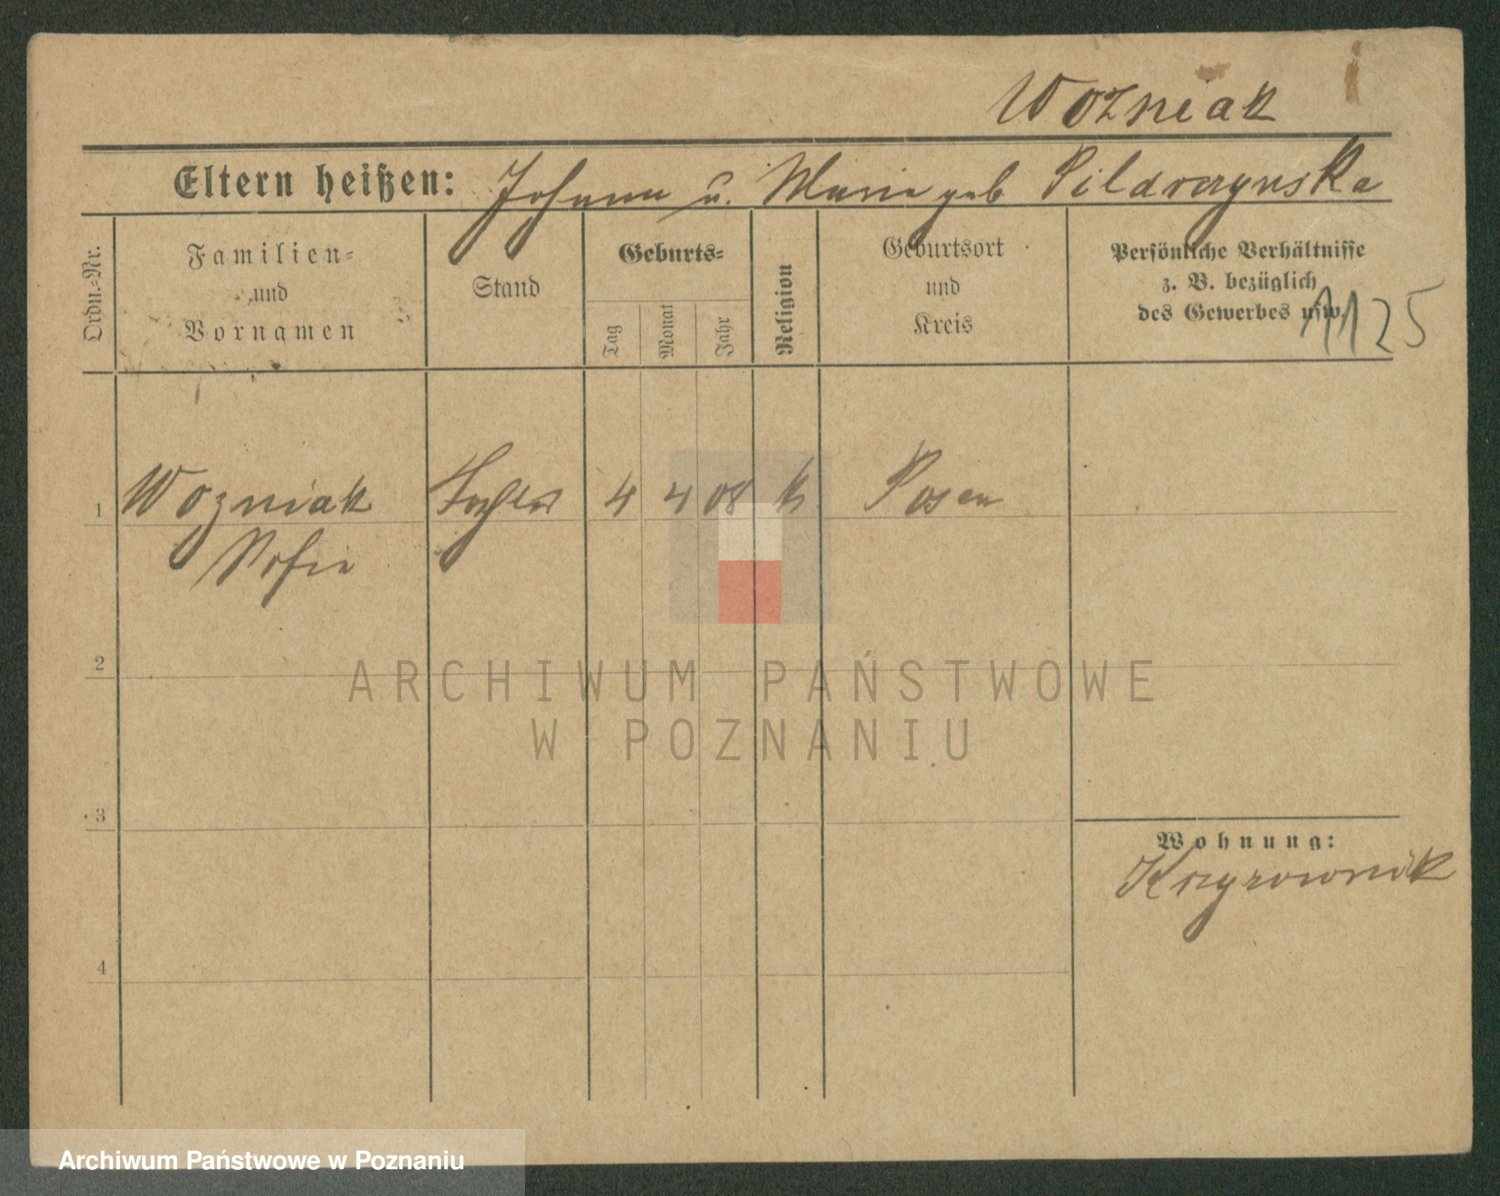 Wozniak
Eltern heißen: Johann u. Marie geb
Ordn.-Nr.
Familien-
und
Vornamen
Stand
Geburts-
Tag
Monat
Jahr
Religion
Geburtsort
und
Kreis
Persönliche Verhältnisse
z. B. bezüglich
des Gewerbes usw.
1125
1 Wozniak Tochter 4 4 08 k Posen
Sofie
2
ARCHIWUM PAŃSTWOWE
W POZNANIU
3
Wohnung:
4
Archiwum Państwowe w Poznaniu